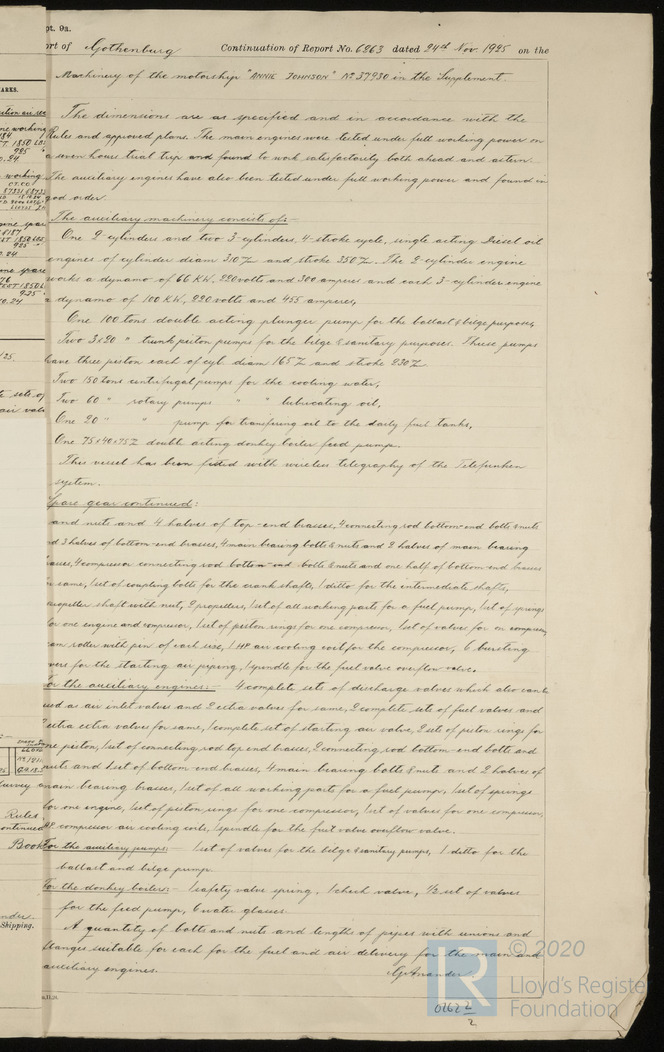 pt. 9a.
ort of Gothenburg Continuation of Report No. 6263 dated 24th Nov. 1925 on the
Machinery of the motorship "ANNIE JOHNSON" No 37930 in the Supplement.
The dimensions are as specified and in accordance with the
Rules and approved plans. The main engines were tested under full working power on
a seven hours trial trip and found to work satisfactorily both ahead and astern.
The auxiliary engines have also been tested under full working power and found in
good order.
The auxiliary machinery consists of:-
One 2 cylinders and two 3 cylinders, 4-stroke cycle, single acting Diesel oil
engines of cylinder diam 310 and stroke 350. The 2-cylinder engine
works a dynamo of 66 KW, 220 volts and 300 amperes and each 3-cylinder engine
a dynamo of 100 KW, 220 volts and 455 amperes,
One 100 tons double acting plunger pump for the ballast & bilge purposes,
Two 3x20 " trunk piston pumps for the bilge & sanitary purposes. These pumps
have three piston each of cyl. diam 165 and stroke 230
Two 150 tons centrifugal pumps for the cooling water,
Two 60 " rotary pumps " " lubricating oil,
One 20 " " pump for transfering oil to the daily fuel tanks,
One double acting donkey boiler feed pump.
This vessel has been fitted with wireless telegraphy of the Telefunken
system.
Spare gear continued:
and nuts and 4 halves of top-end brasses, 4 connecting rod bottom-end bolts & nuts
nd 3 halves of bottom-end brasses, 4 main bearing bolts & nuts and 2 halves of main bearing
brasses, 4 compressor connecting rod bottom-end bolts & nuts and one half of bottom-end brasses
same, 1 set of coupling bolts for the crank shafts, 1 ditto for the intermediate shafts,
propeller shaft with nut, 2 propellers, 1 set of all working parts for a fuel pump, 1 set of springs
for one engine and compressor, 1 set of piston rings for one compressor, 1 set of valves for on compressor,
cam roller with pin of each size, 1 HP air cooling coil for the compressor, 6 bursting
vers for the starting air piping, 1 spindle for the fuel valve overflow valve.
For the auxiliary engines:- 4 complete sets of discharge valves which also can be
used as air inlet valves and 2 extra valves for same, 2 complete sets of fuel valves and
2 extra extra valves for same, 1 complete set of starting air valve, 2 sets of piston rings for
one piston, 1 set of connecting rod top end brasses, 2 connecting rod bottom-end bolts and
nuts and 1 set of bottom-end brasses, 4 main bearing bolts & nuts and 2 halves of
main bearing brasses, 1 set of all working parts for a fuel pump, 1 set of springs
for one engine, 1 set of piston rings for one compressor, 1 set of valves for one compressor,
HP compressor air cooling coils, 1 spindle for the fuel valve overflow valve.
For the auxiliary pumps:- 1 set of valves for the bilge & sanitary pumps, 1 ditto for the
ballast and bilge pump.
For the donkey boiler:- 1 safety valve spring, 1 check valve, 1/2 set of valves
for the feed pump, 6 water glasses.
A quantity of bolts and nuts and lengths of pipes with unions and
flanges suitable for each for the fuel and air delivery for the main and
auxiliary engines.
0262 2/2
© 2020
LR
Lloyd's Register
Foundation